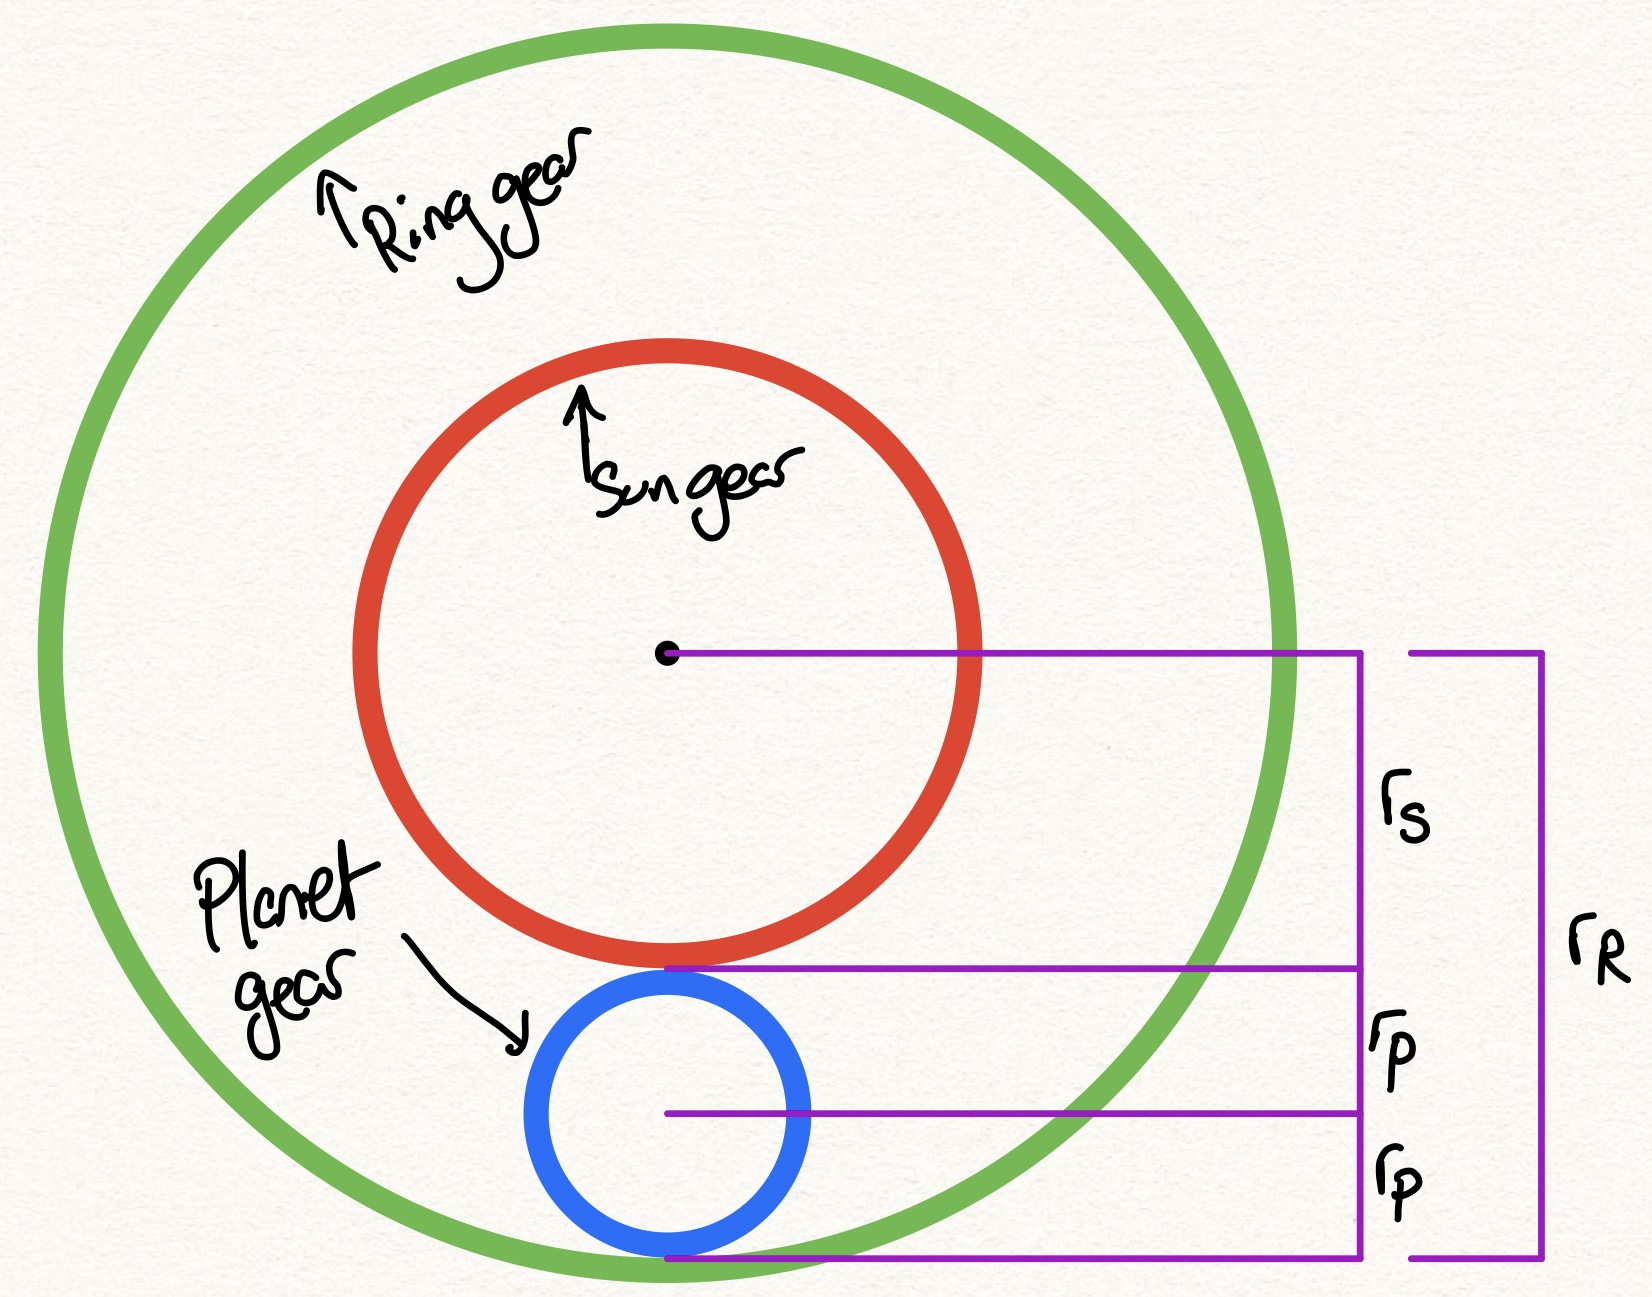 Ring gear
Sun gear
Planet
gear
rs
rR
rp
rp